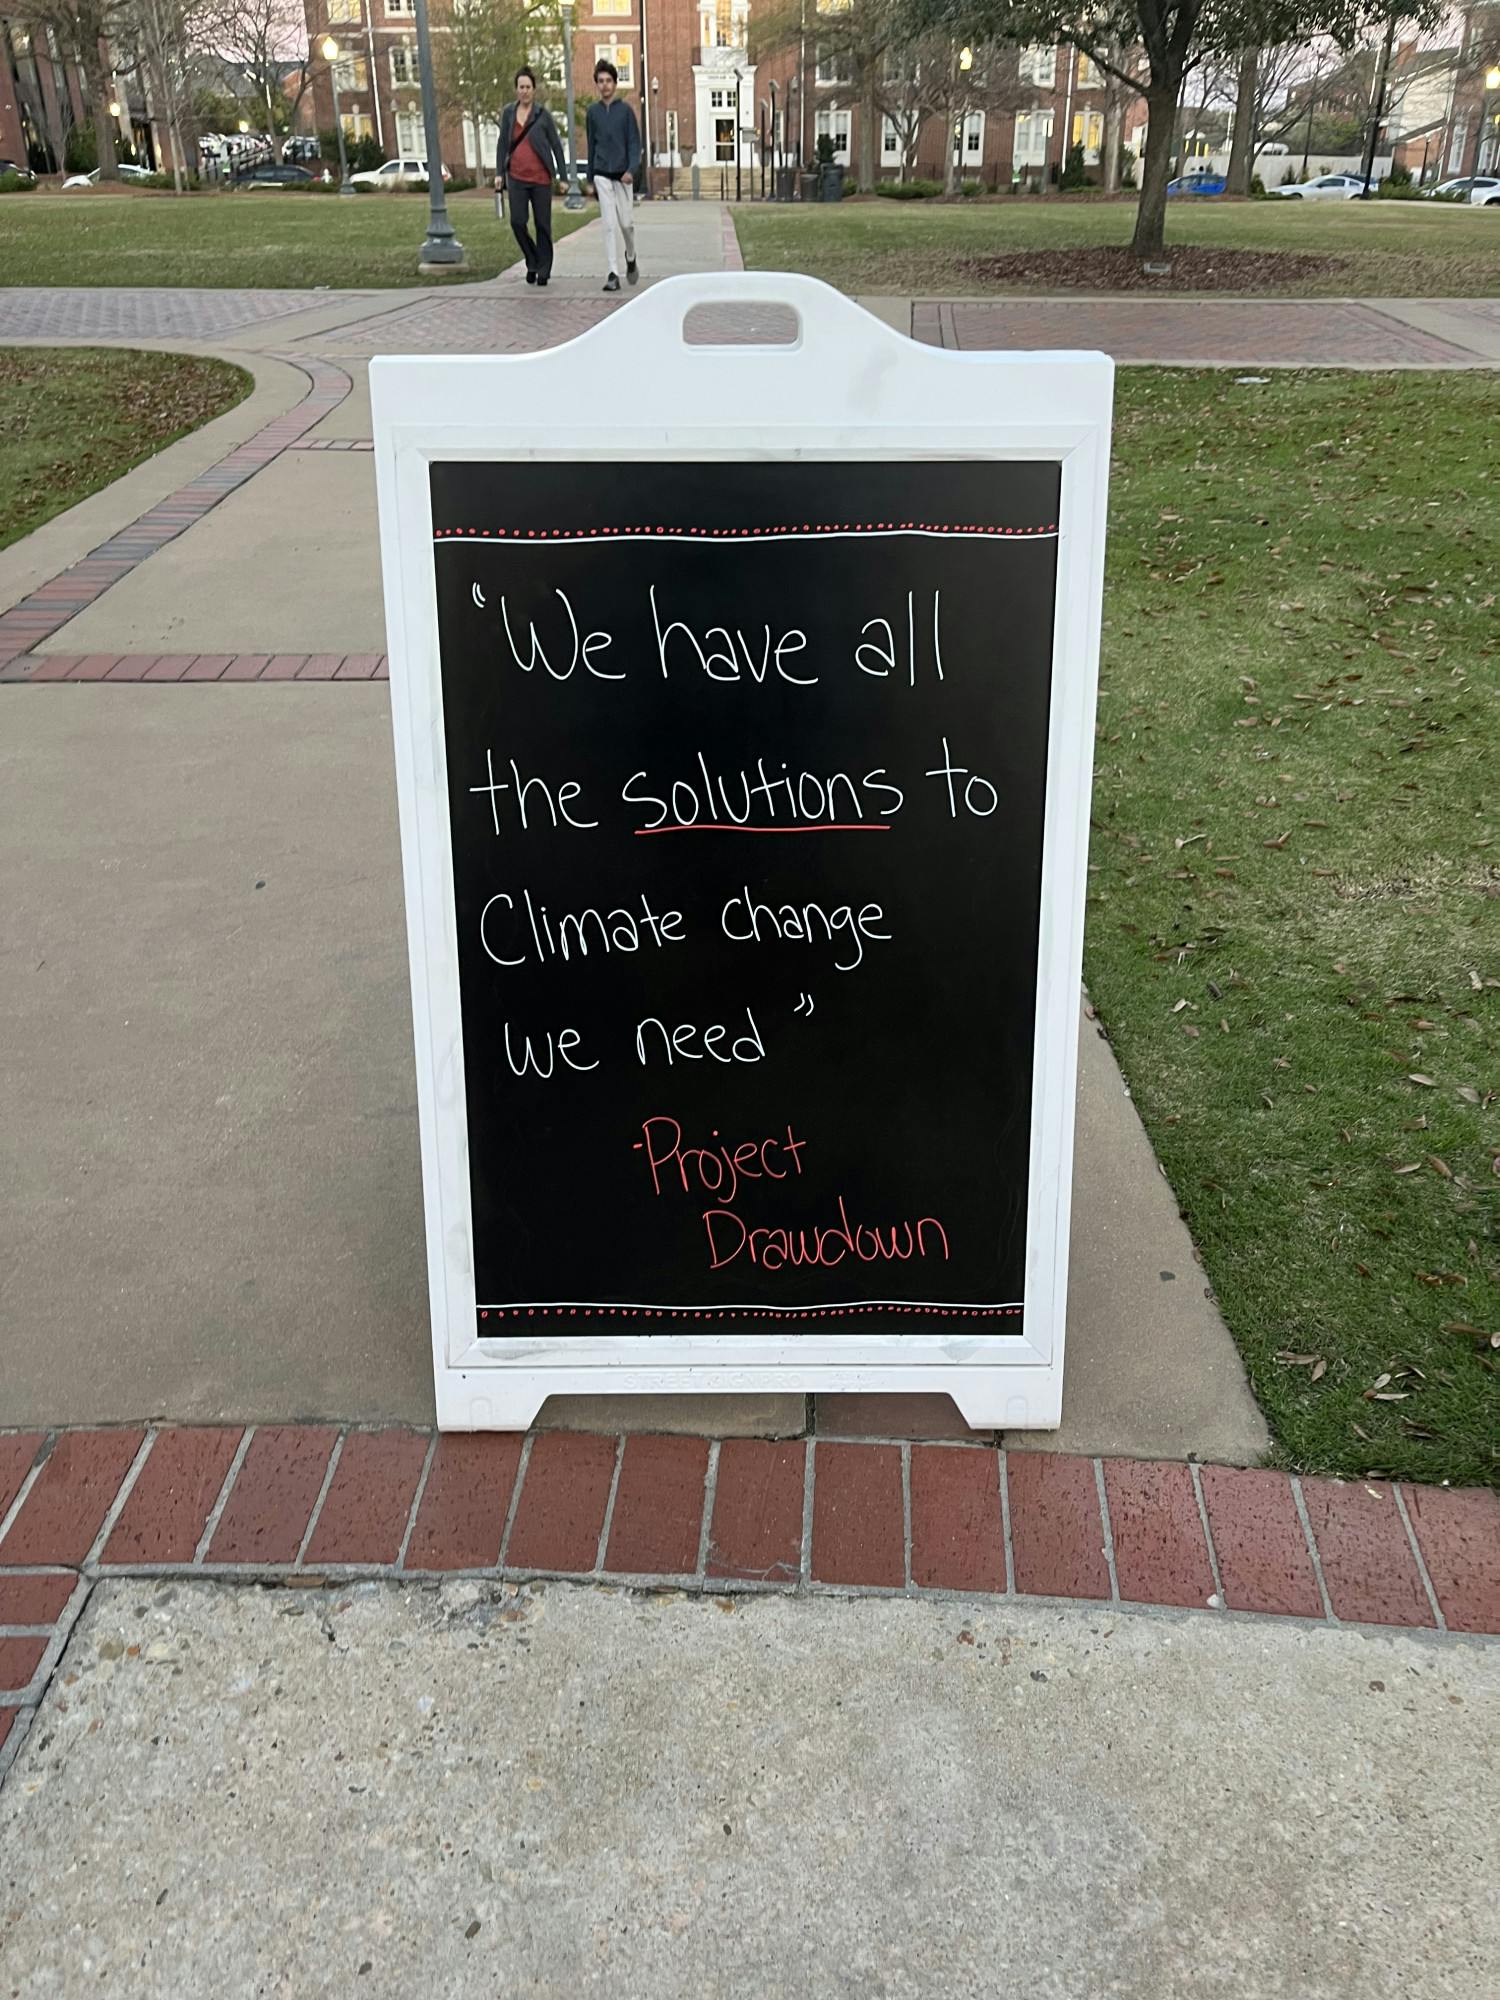 "We have all
the solutions to
Climate change
we need"
-Project
Drawdown
STREET SIGN PRO